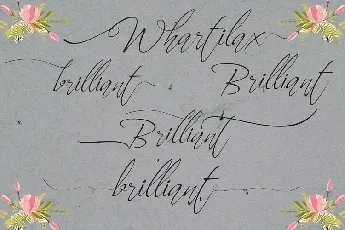 Whartilax
brilliant Brilliant
Brilliant
brilliant